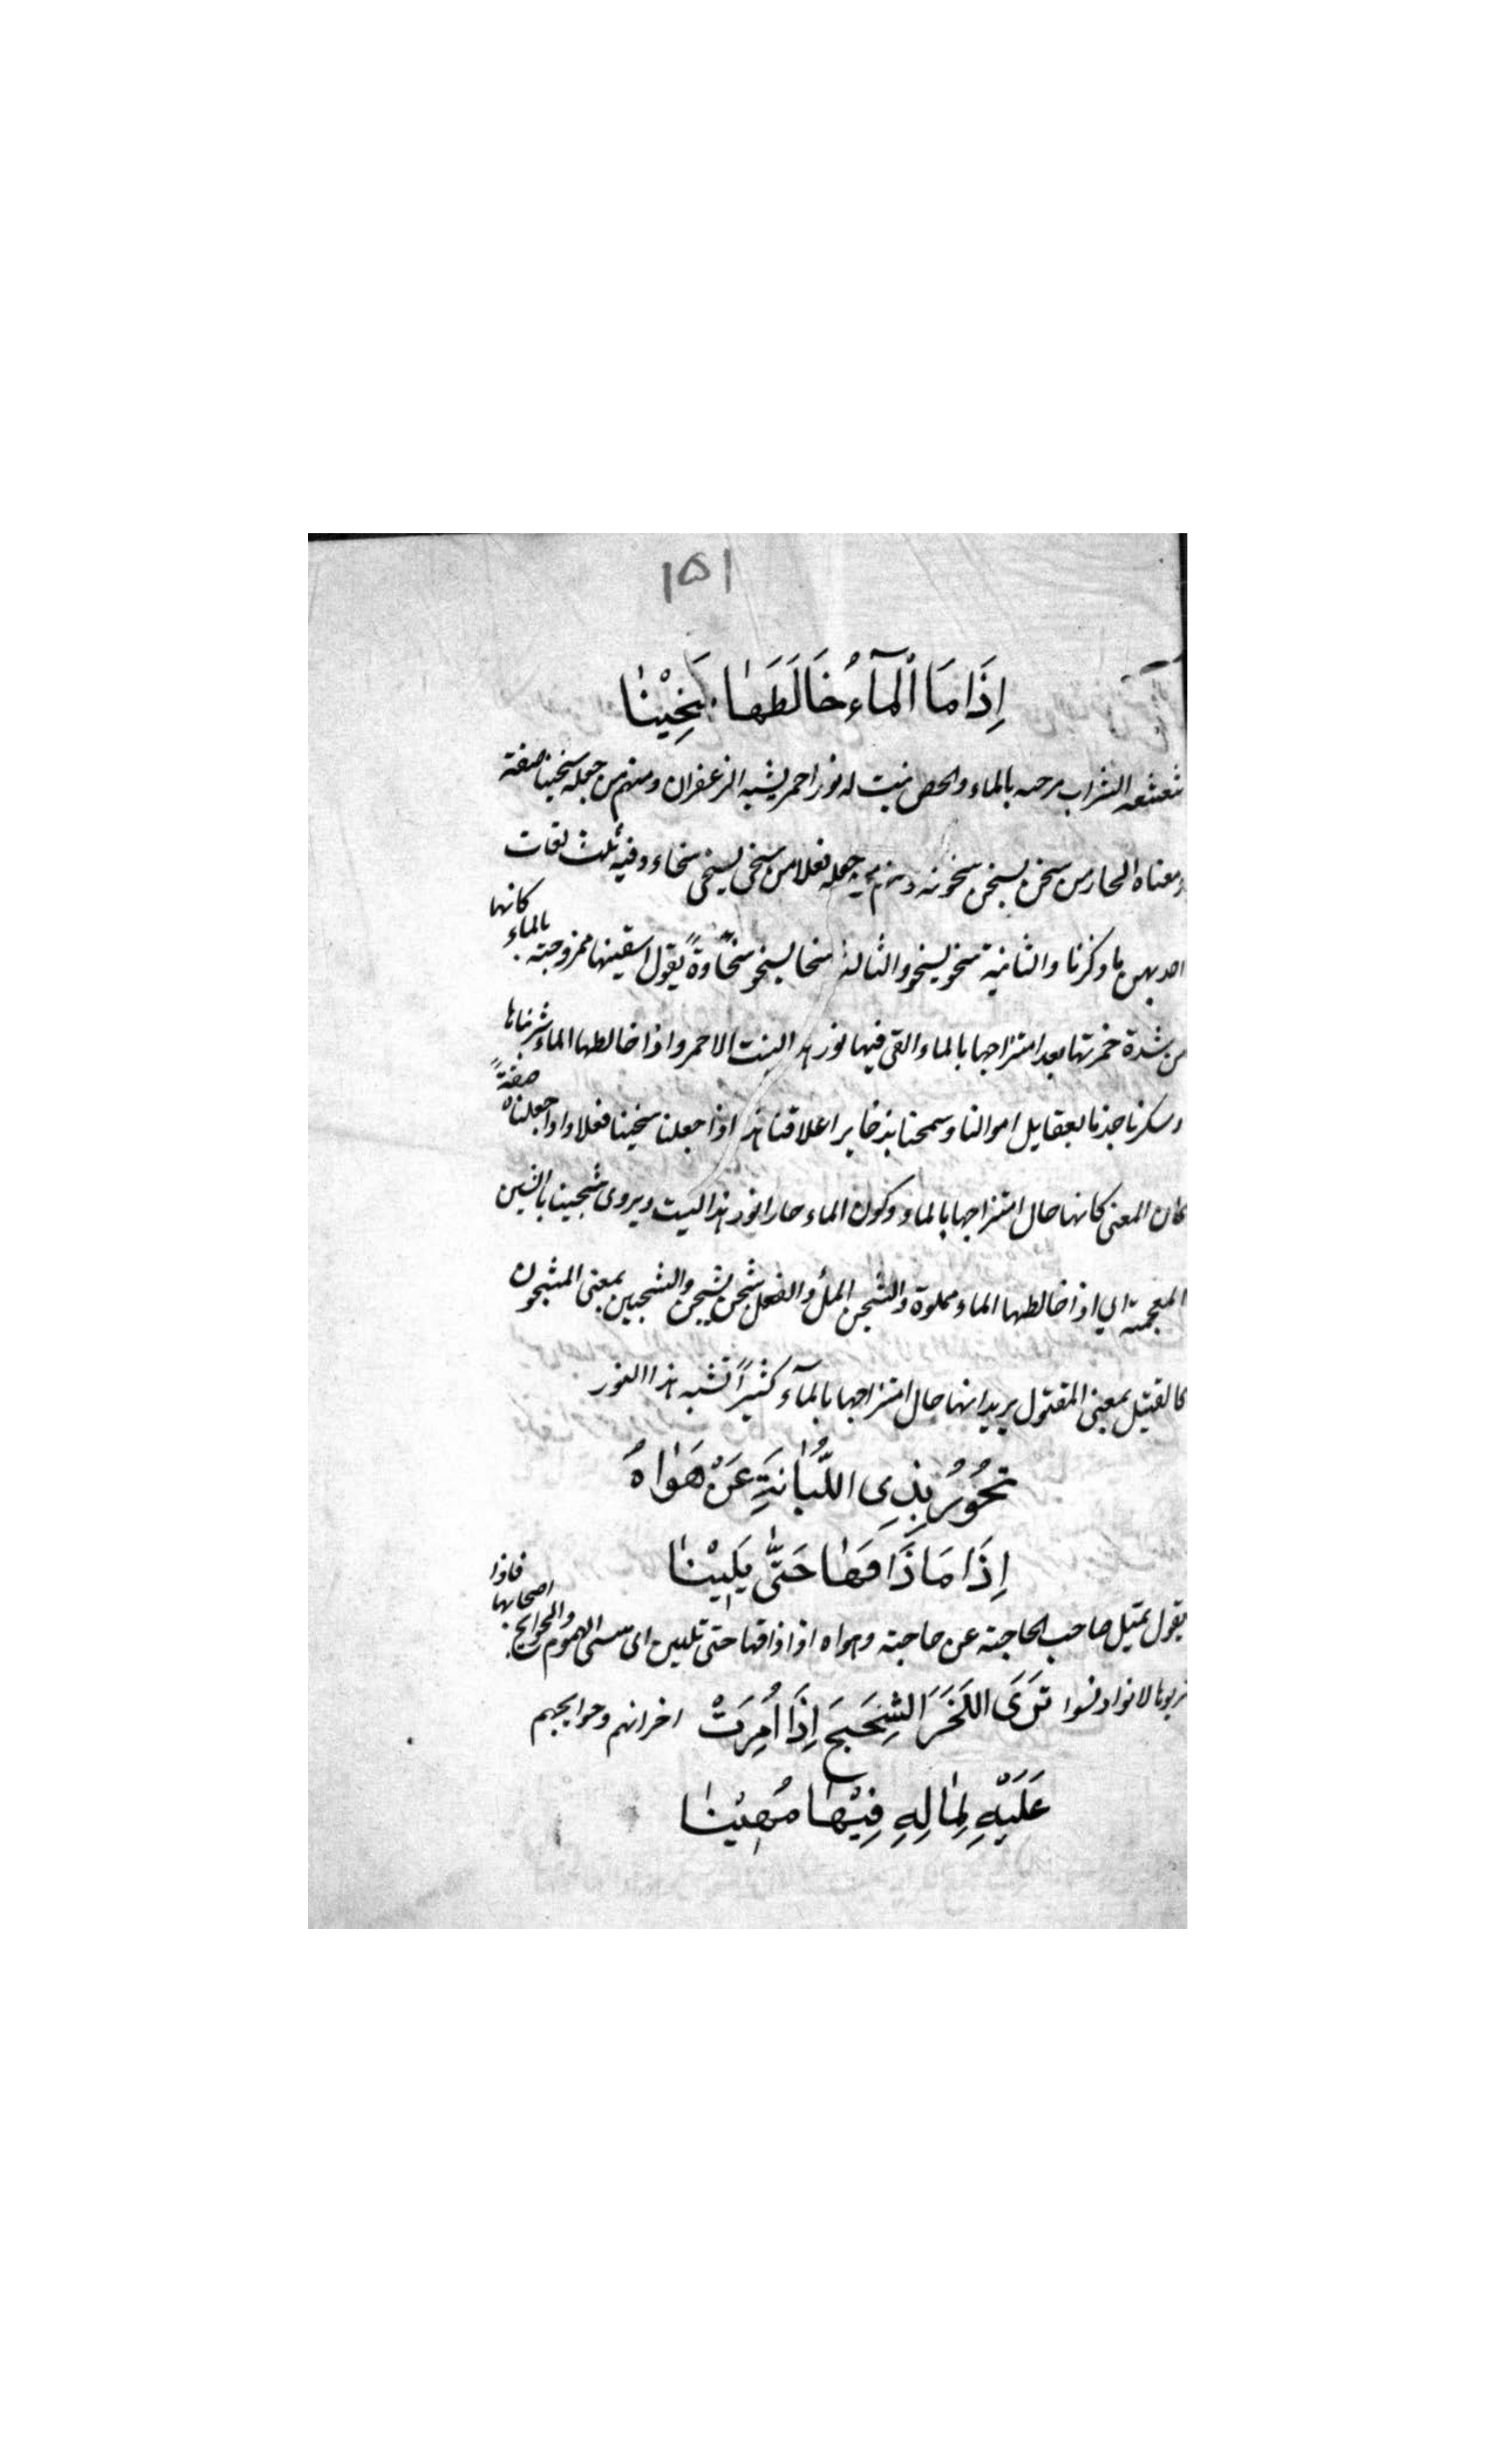 ١٥١
إِذَا مَا الْمَآءُ خَالَطَهَا سَخِيْنَا
شعشعه الشراب مزجه بالماء والحص نبت له نور احمر يشبه الزعفران ومنهم من جعله سخينا صفة
ومعناه الحار من سخن يسخن سخونة ومنهم من جعله فعلا من سخى يسخى سخاء وفيه ثلث لغات
احديهن ما ذكرنا والثانية سخو يسخو والثالثة سخا يسخو سخاوةً يقول اسقينها ممزوجة بالماء كانها
من شدة حمرتها بعد امتزاجها بالماء القى فيها نور هذا النبت الاحمر واذا خالطها الماء شربناها
وسكرنا جدنا بعقايل اموالنا وسمحنا بذخاير اعلاقنا هذا اذا جعلنا سخينا فعلا واذا جعلناه صفةً
كان المعنى كانها حال امتزاجها بالماء وكون الماء حارا نور هذا النبت ويروى شحينا بالشين
المعجمة اي اذا خالطها الماء مملوة والشحن الملأ والفعل شحن يشحن والشحين بمعنى المشحون
كالقتيل بمعنى المقتول يريد انها حال امتزاجها بالمآء كثيراً تشبه هذا النور
تَجُوْرُ بِذِى اللُّبَانَةِ عَنْ هَوَاهُ
إِذَا مَا ذَاقَهَا حَتَّى يَلِيْنَا
يقول تميل صاحب الحاجة عن حاجته وهواه اذا ذاقها حتى تلين اى تنسى الهموم والحوايج اصحابها فاذا
شربوها لانوا ونسوا تَرَى اللَّحِزَ الشَّحِيحَ إِذَا أُمِرَتْ احزانهم وحوايجهم
عَلَيْهِ لِمَالِهِ فِيْهَا مُهِيْنَا